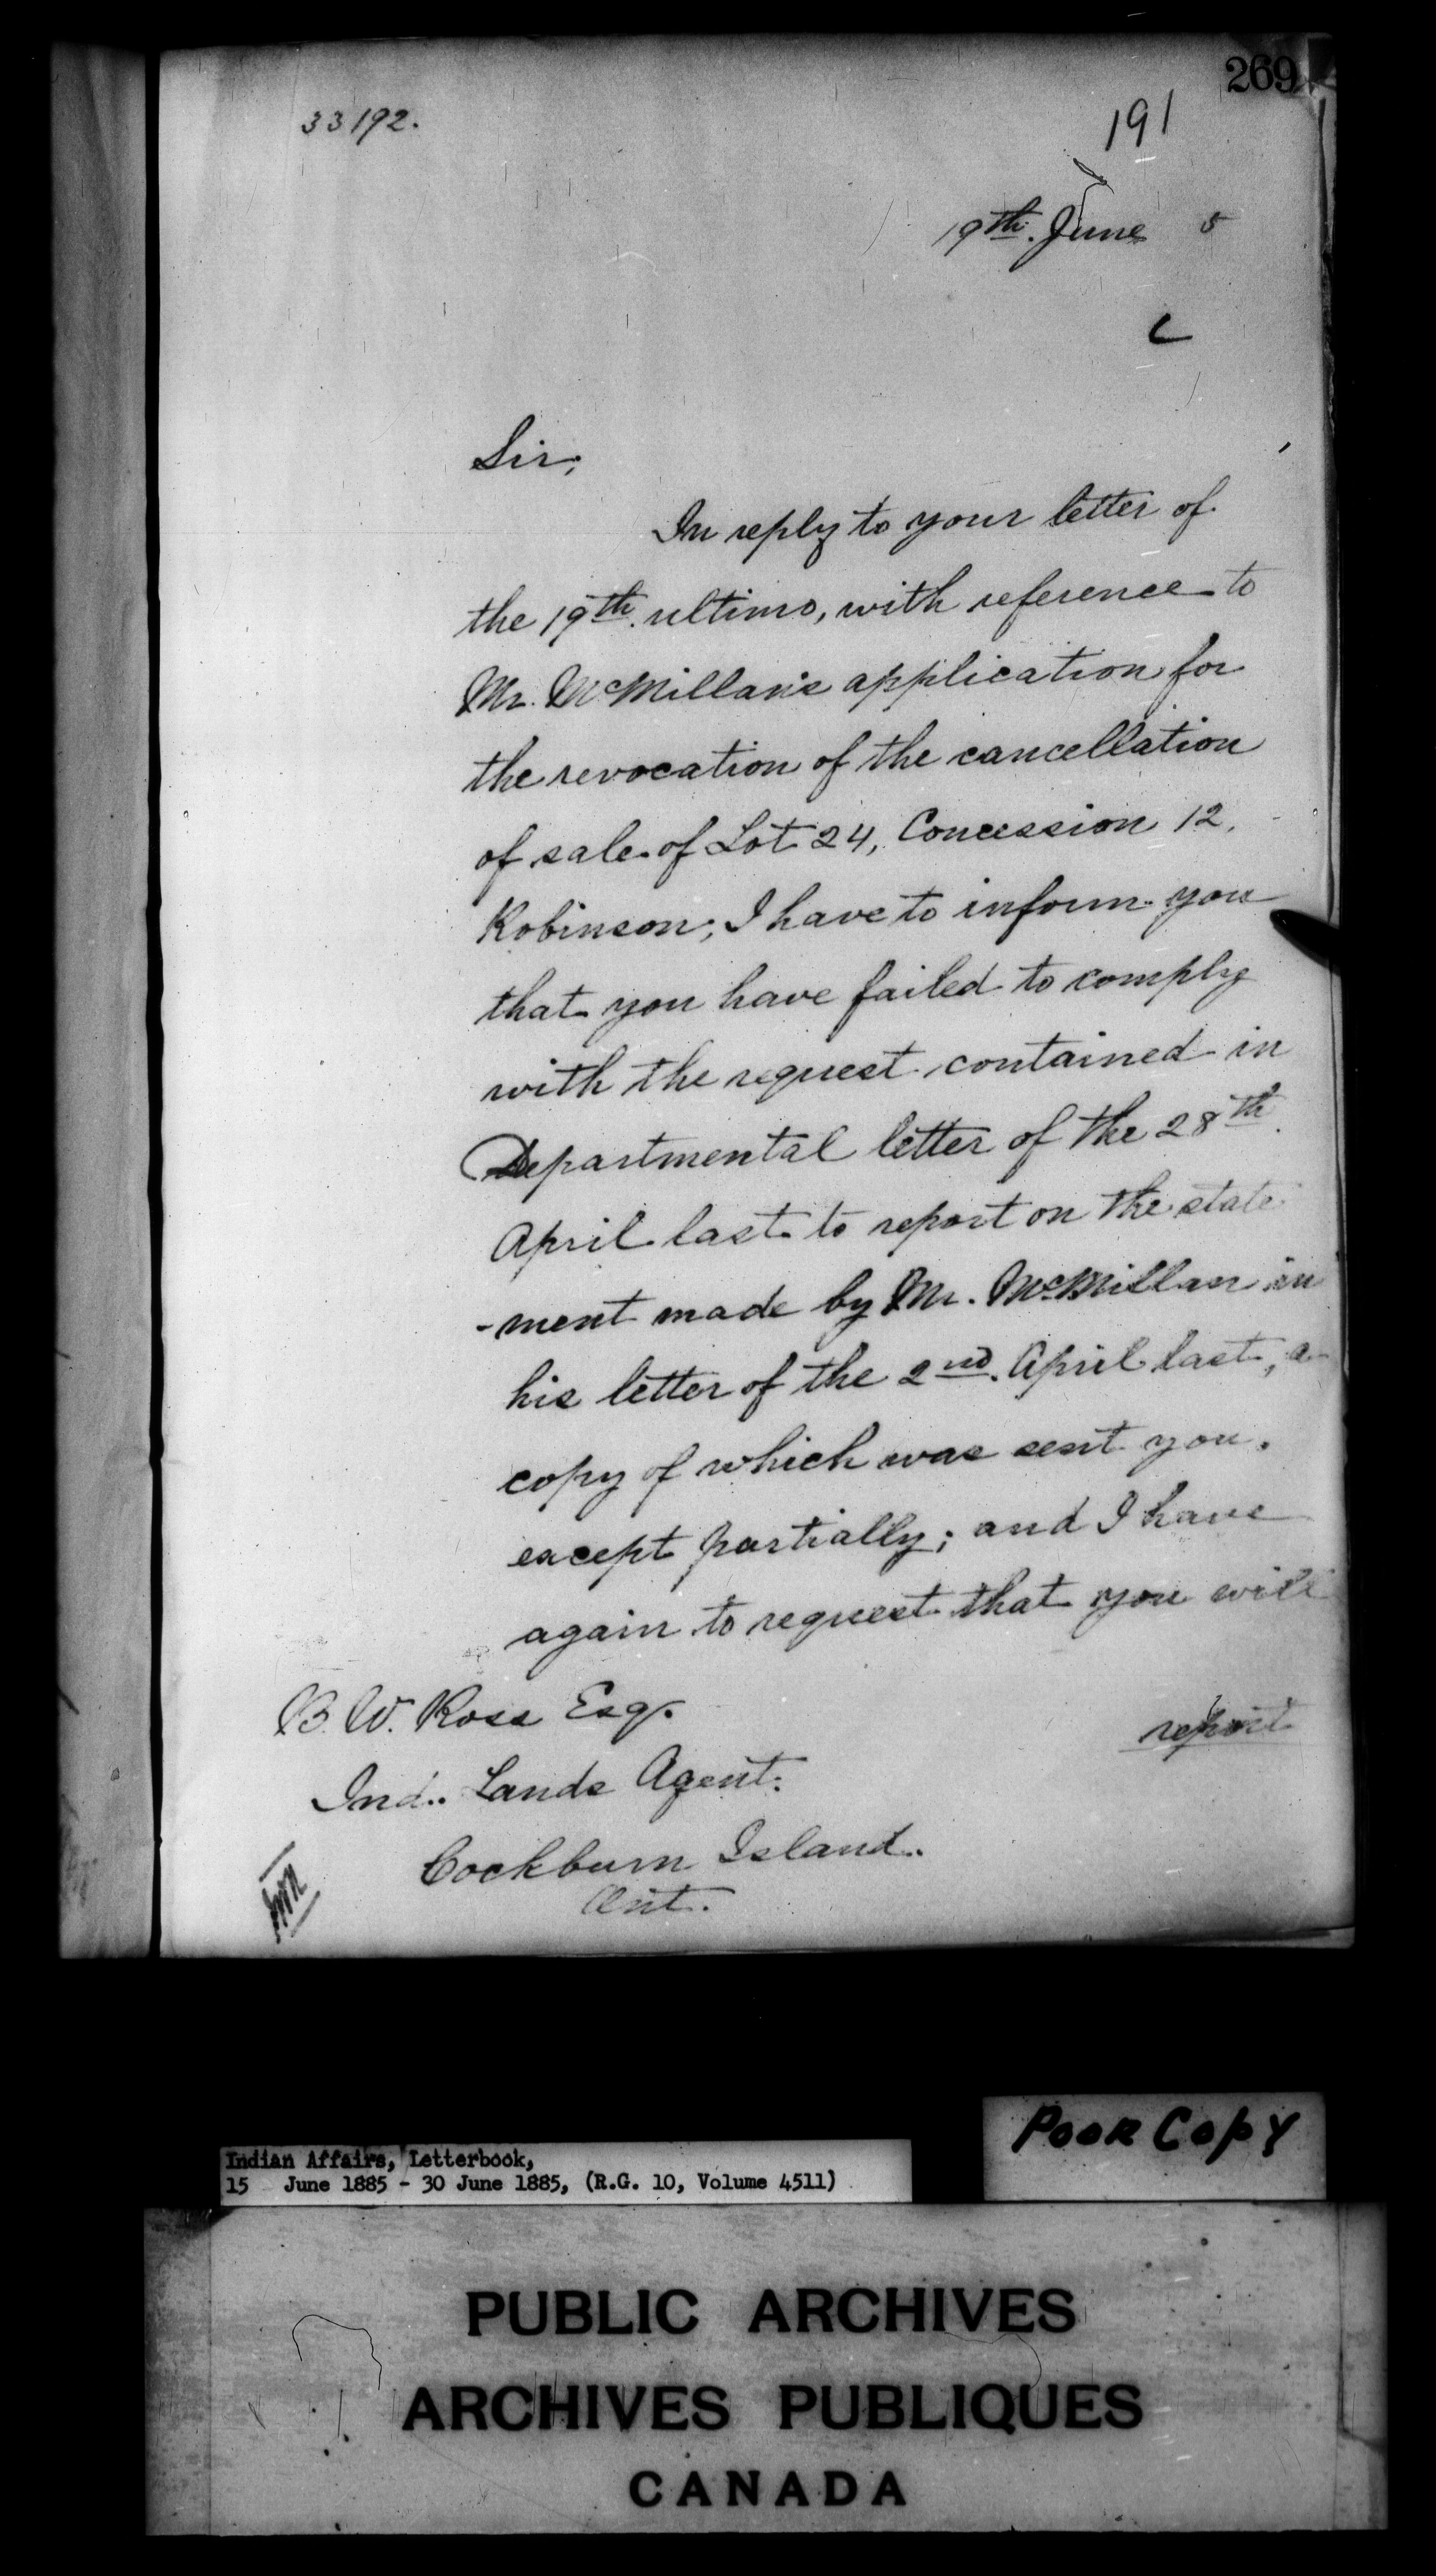 269
33192.
191
19th. June 5
C
Sir,
In reply to your letter of
the 19th. ultimo, with reference to
Mr. McMillan's application for
the revocation of the cancellation
of sale of Lot 24, Concession 12,
Robinson; I have to inform you
that you have failed to comply
with the request contained in
Departmental letter of the 28th.
April last to report on the state
-ment made by Mr. McMillan in
his letter of the 2nd. April last, a
copy of which was sent you,
except partially; and I have
again to request that you will
report
B. W. Ross Esq.
Ind. Lands Agent.
Cockburn Island.
Ont.
Poor Copy
Indian Affairs, Letterbook,
15 June 1885 - 30 June 1885, (R.G. 10, Volume 4511)
PUBLIC ARCHIVES
ARCHIVES PUBLIQUES
CANADA